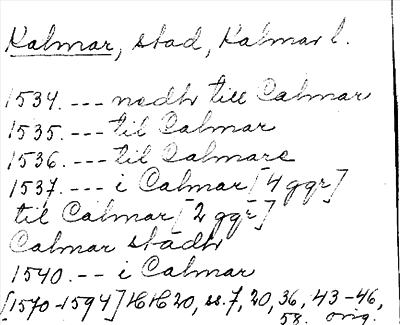 Kalmar, stad, Kalmar l.
1534. --- nedhr till Calmar
1535. --- til Calmar
1536. --- til Calmare
1537. --- i Calmar [4 ggr]
til Calmar [2 ggr]
Calmar stadhr
1540. -- i Calmar
[1570-1594] HH 20, ss. 7, 20, 36, 43-46,
58. orig.